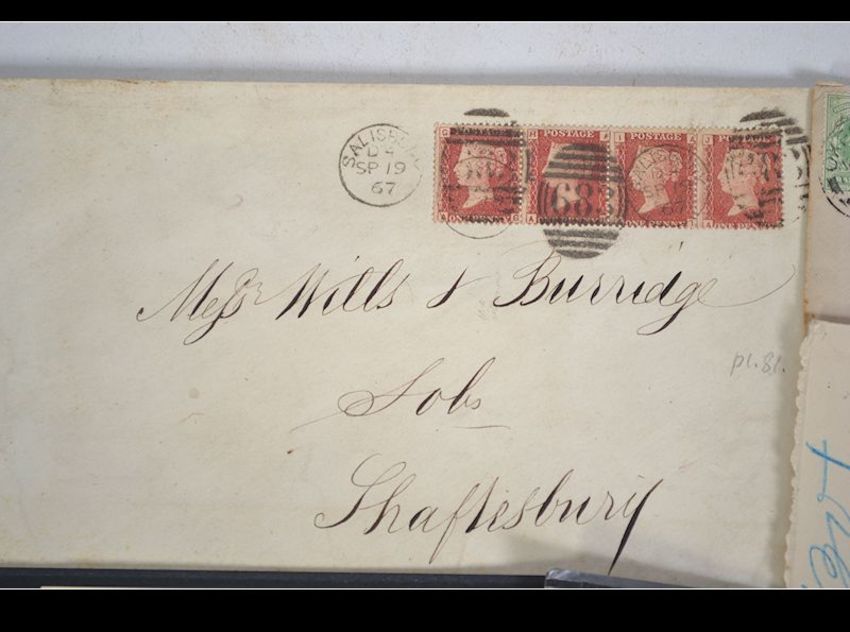 SALISBURY
D4
SP 19
67
G
H POSTAGE A
I POSTAGE A
POSTAGE
683
ONE PENNY
Messr Wills & Burridge
Sols
Shaftesbury
pl. 81.